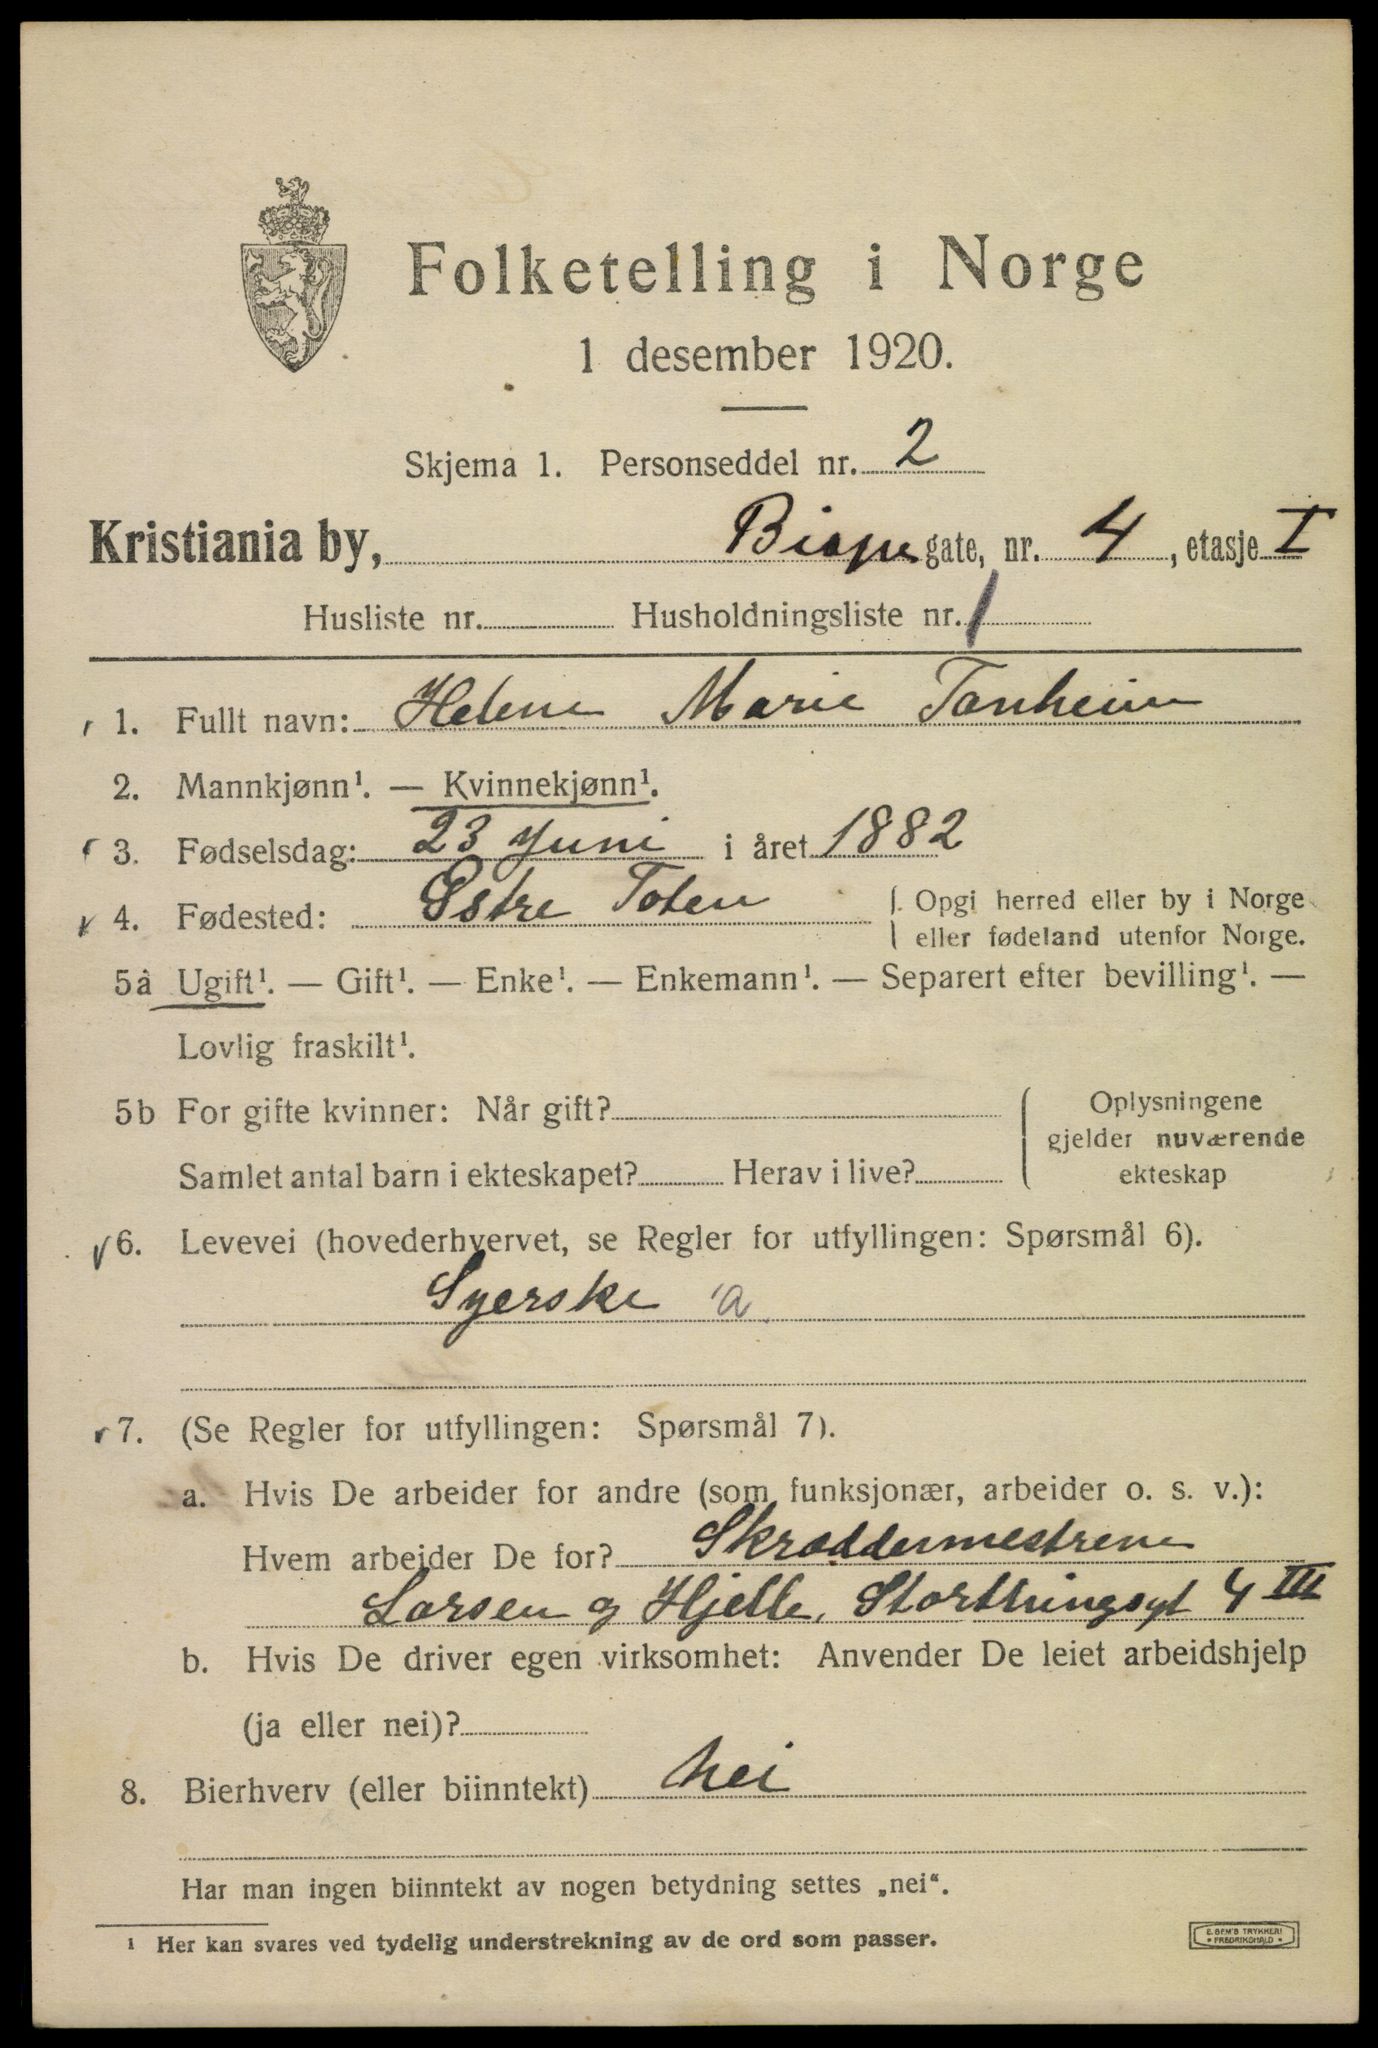 Folketelling i Norge
1 desember 1920.
Skjema 1. Personseddel nr. 2
Kristiania by, gate, nr. 4, etasje I
Husliste nr. Husholdningsliste nr. 1
1. Fullt navn: Helene Marie Tanheim
2. Mannkjønn¹. — Kvinnekjønn¹.
3. Fødselsdag: 23 Juni i året 1882
4. Fødested: Østre Toten { Opgi herred eller by i Norge
eller fødeland utenfor Norge.
5a Ugift¹. — Gift¹. — Enke¹. — Enkemann¹. — Separert efter bevilling¹. —
Lovlig fraskilt¹.
5b For gifte kvinner: Når gift?
Samlet antal barn i ekteskapet? Herav i live?
Oplysningene
gjelder nuværende
ekteskap
6. Levevei (hovederhvervet, se Regler for utfyllingen: Spørsmål 6).
Syerske a
7. (Se Regler for utfyllingen: Spørsmål 7).
a. Hvis De arbeider for andre (som funksjonær, arbeider o. s. v.):
Hvem arbeider De for? Skræddermestrene
Larsen og Hjelle, Storthingsgt 4 III
b. Hvis De driver egen virksomhet: Anvender De leiet arbeidshjelp
(ja eller nei)?
8. Bierhverv (eller biinntekt) Nei
Har man ingen biinntekt av nogen betydning settes „nei“.
¹ Her kan svares ved tydelig understrekning av de ord som passer.
E. SEM'S TRYKKERI
FREDRIKSHALD